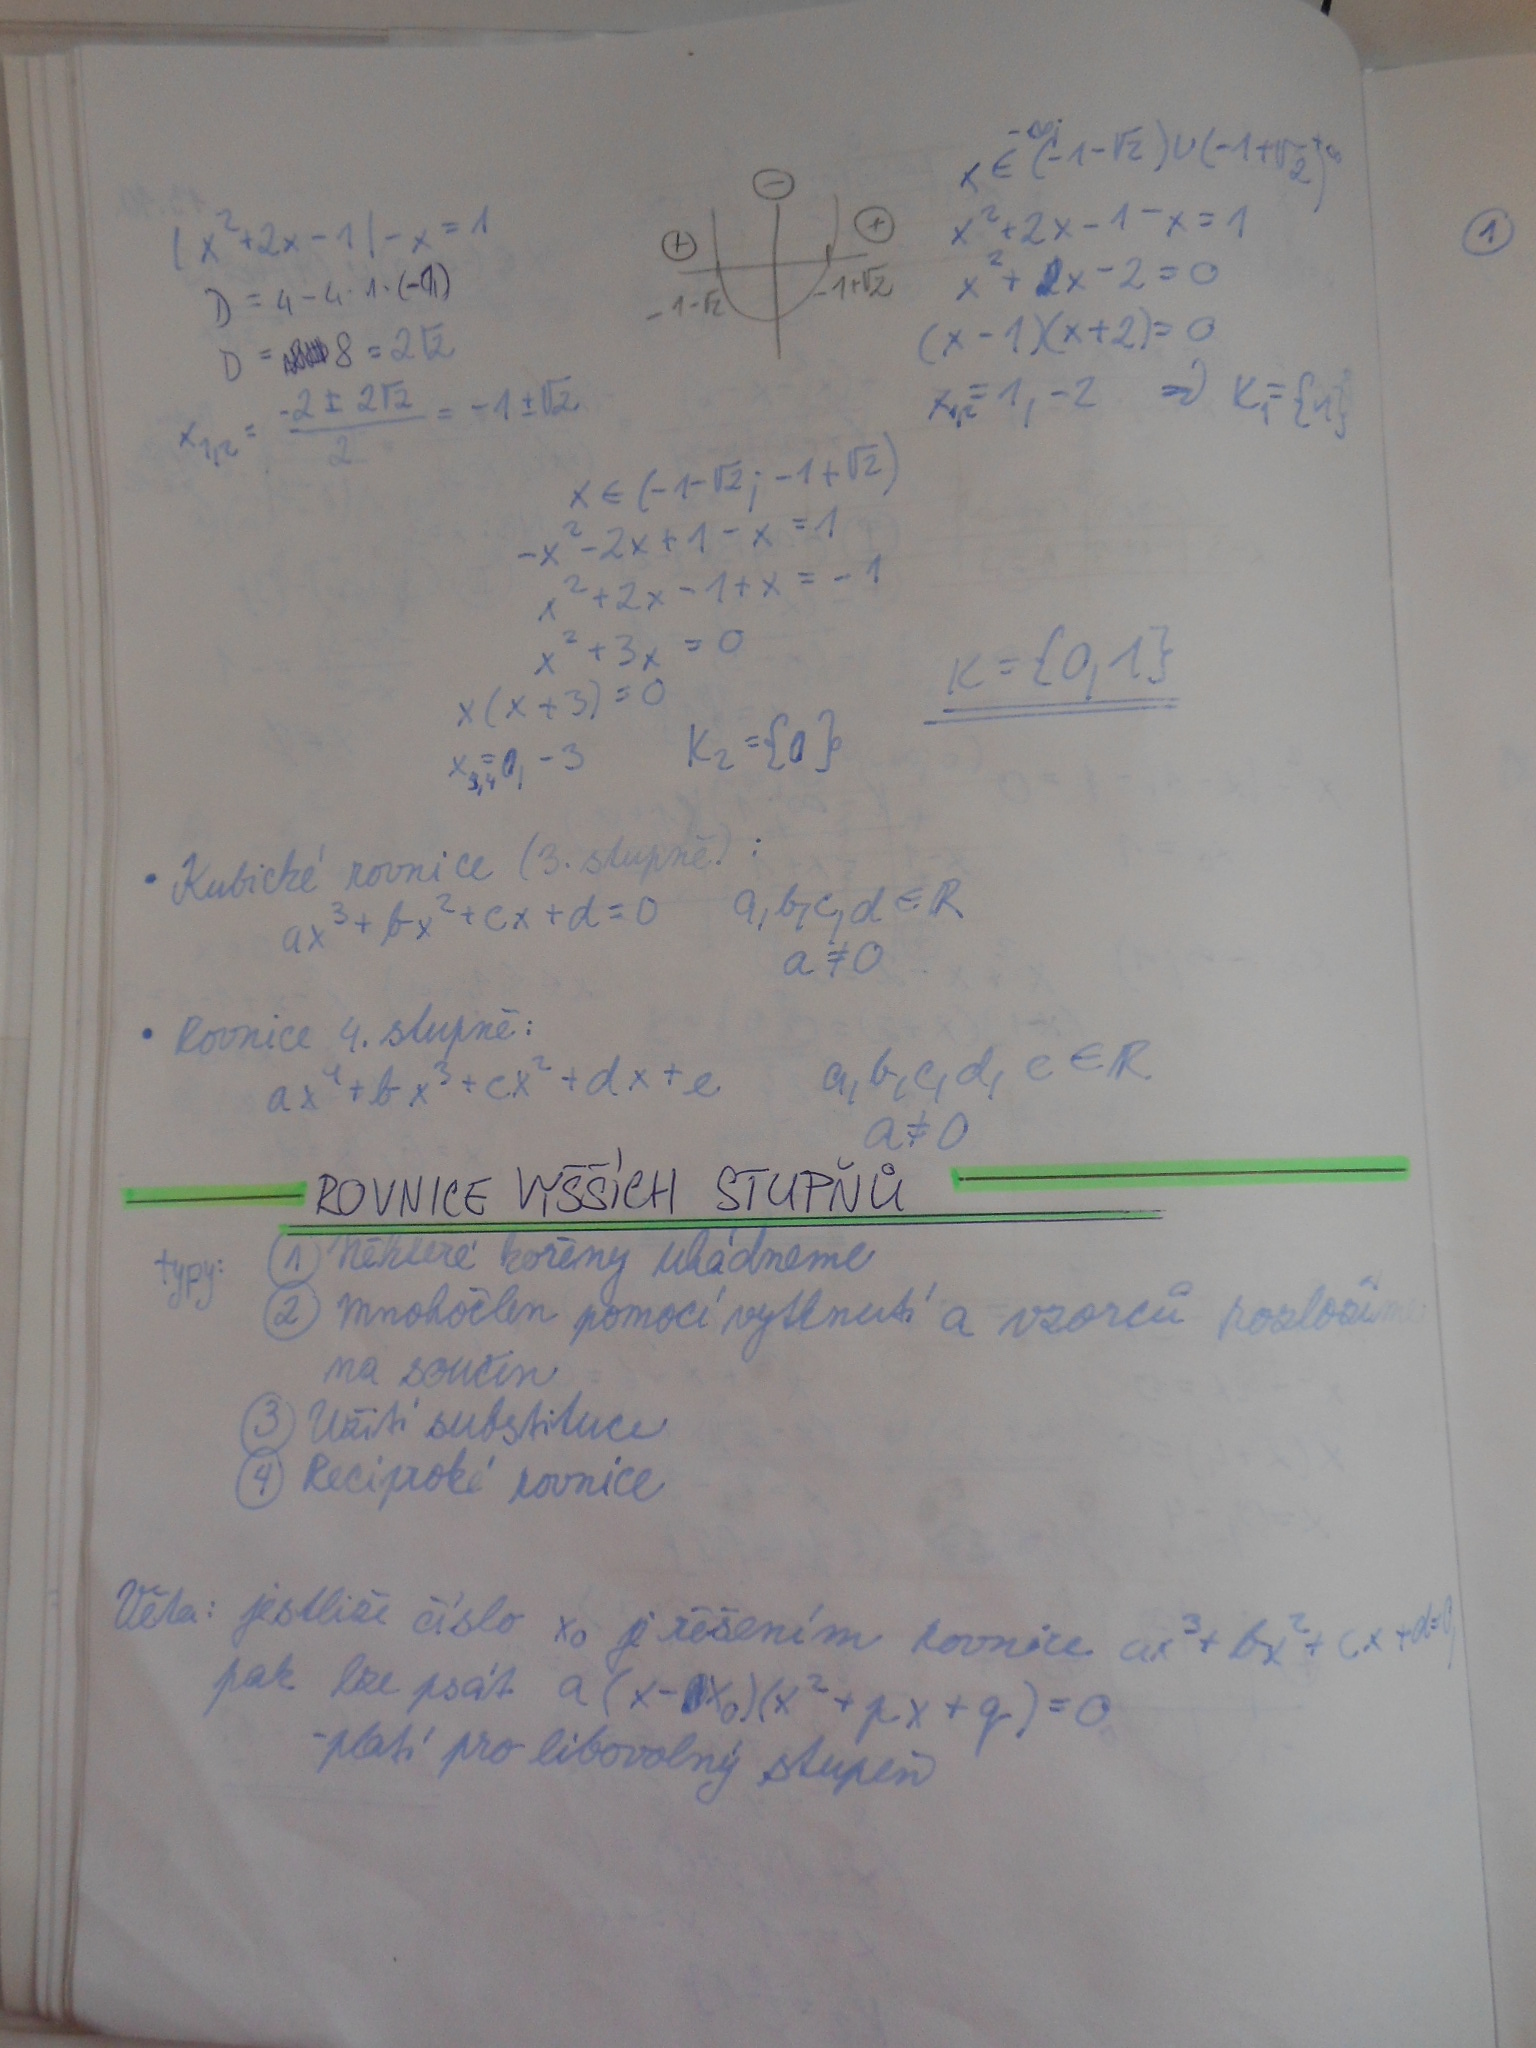 |x²+2x-1|-x=1
D = 4-4·1·(-1)
D = 8 = 2√2
x₁,₂ = (-2 ± 2√2)/2 = -1±√2
-
+ +
-1-√2 -1+√2
x ∈ (-∞; -1-√2) ∪ (-1+√2, +∞)
x²+2x-1-x=1
x²+x-2=0
(x-1)(x+2)=0
x₁,₂=1, -2 ⇒ K₁={1}
x ∈ (-1-√2; -1+√2)
-x²-2x+1-x=1
x²+2x-1+x=-1
x²+3x=0
x(x+3)=0
x₃,₄=0, -3 K₂={0}
K={0,1}
• Kubické rovnice (3. stupně):
ax³+bx²+cx+d=0 a,b,c,d ∈ R
a≠0
• Rovnice 4. stupně:
ax⁴+bx³+cx²+dx+e a,b,c,d,e ∈ R
a≠0
ROVNICE VYŠŠÍCH STUPŇŮ
typy: ① Některé kořeny uhádneme
② Mnohočlen pomocí vytknutí a vzorců rozložíme
na součin
③ Užití substituce
④ Reciproké rovnice
Věta: jestliže číslo x₀ je řešením rovnice ax³+bx²+cx+d=0,
pak lze psát a(x-x₀)(x²+px+q)=0
-platí pro libovolný stupeň
①